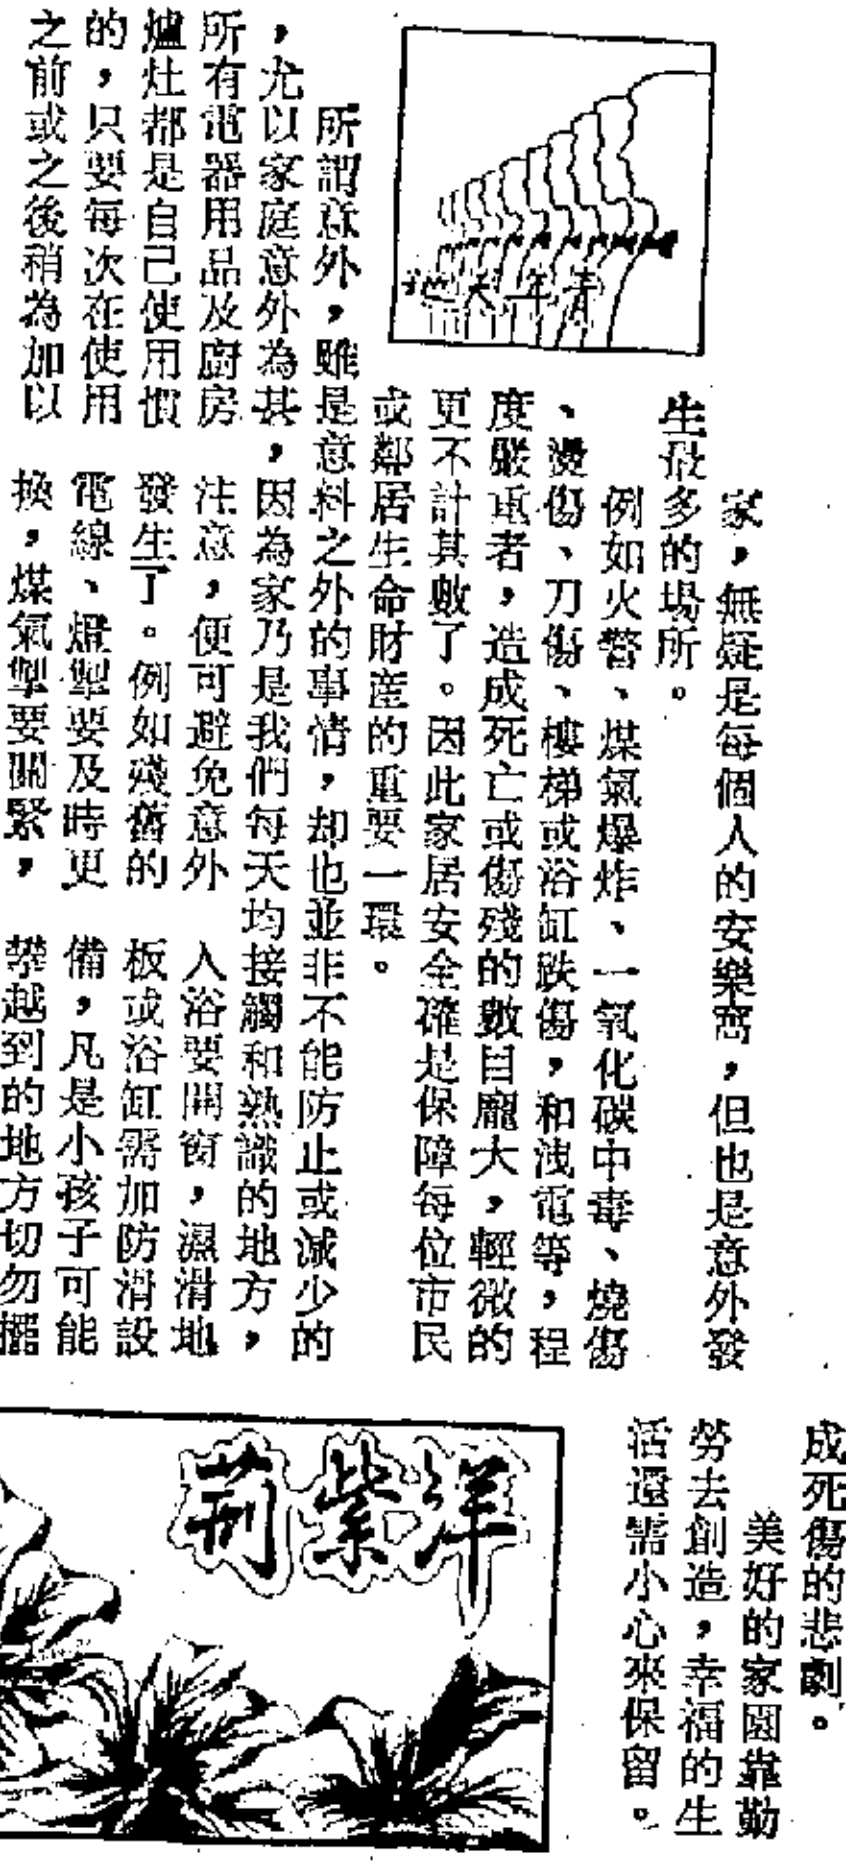 青年天地
家，無疑是每個人的安樂窩，但也是意外發
生最多的場所。
例如火警、煤氣爆炸、一氧化碳中毒、燒傷
、燙傷、刀傷、樓梯或浴缸跌傷，和洩電等，程
度嚴重者，造成死亡或傷殘的數目龐大，輕微的
更不計其數了。因此家居安全確是保障每位市民
或鄰居生命財產的重要一環。
所謂意外，雖是意料之外的事情，却也並非不能防止或減少的
，尤以家庭意外為甚，因為家乃是我們每天均接觸和熟識的地方，
所有電器用品及廚房
爐灶都是自己使用慣
的，只要每次在使用
之前或之後稍為加以
注意，便可避免意外
發生了。例如殘舊的
電線、燈掣要及時更
換，煤氣掣要關緊，
入浴要開窗，濕滑地
板或浴缸需加防滑設
備，凡是小孩子可能
攀越到的地方切勿擺
成死傷的悲劇。
美好的家園靠勤
勞去創造，幸福的生
活還需小心來保留。
洋紫荊